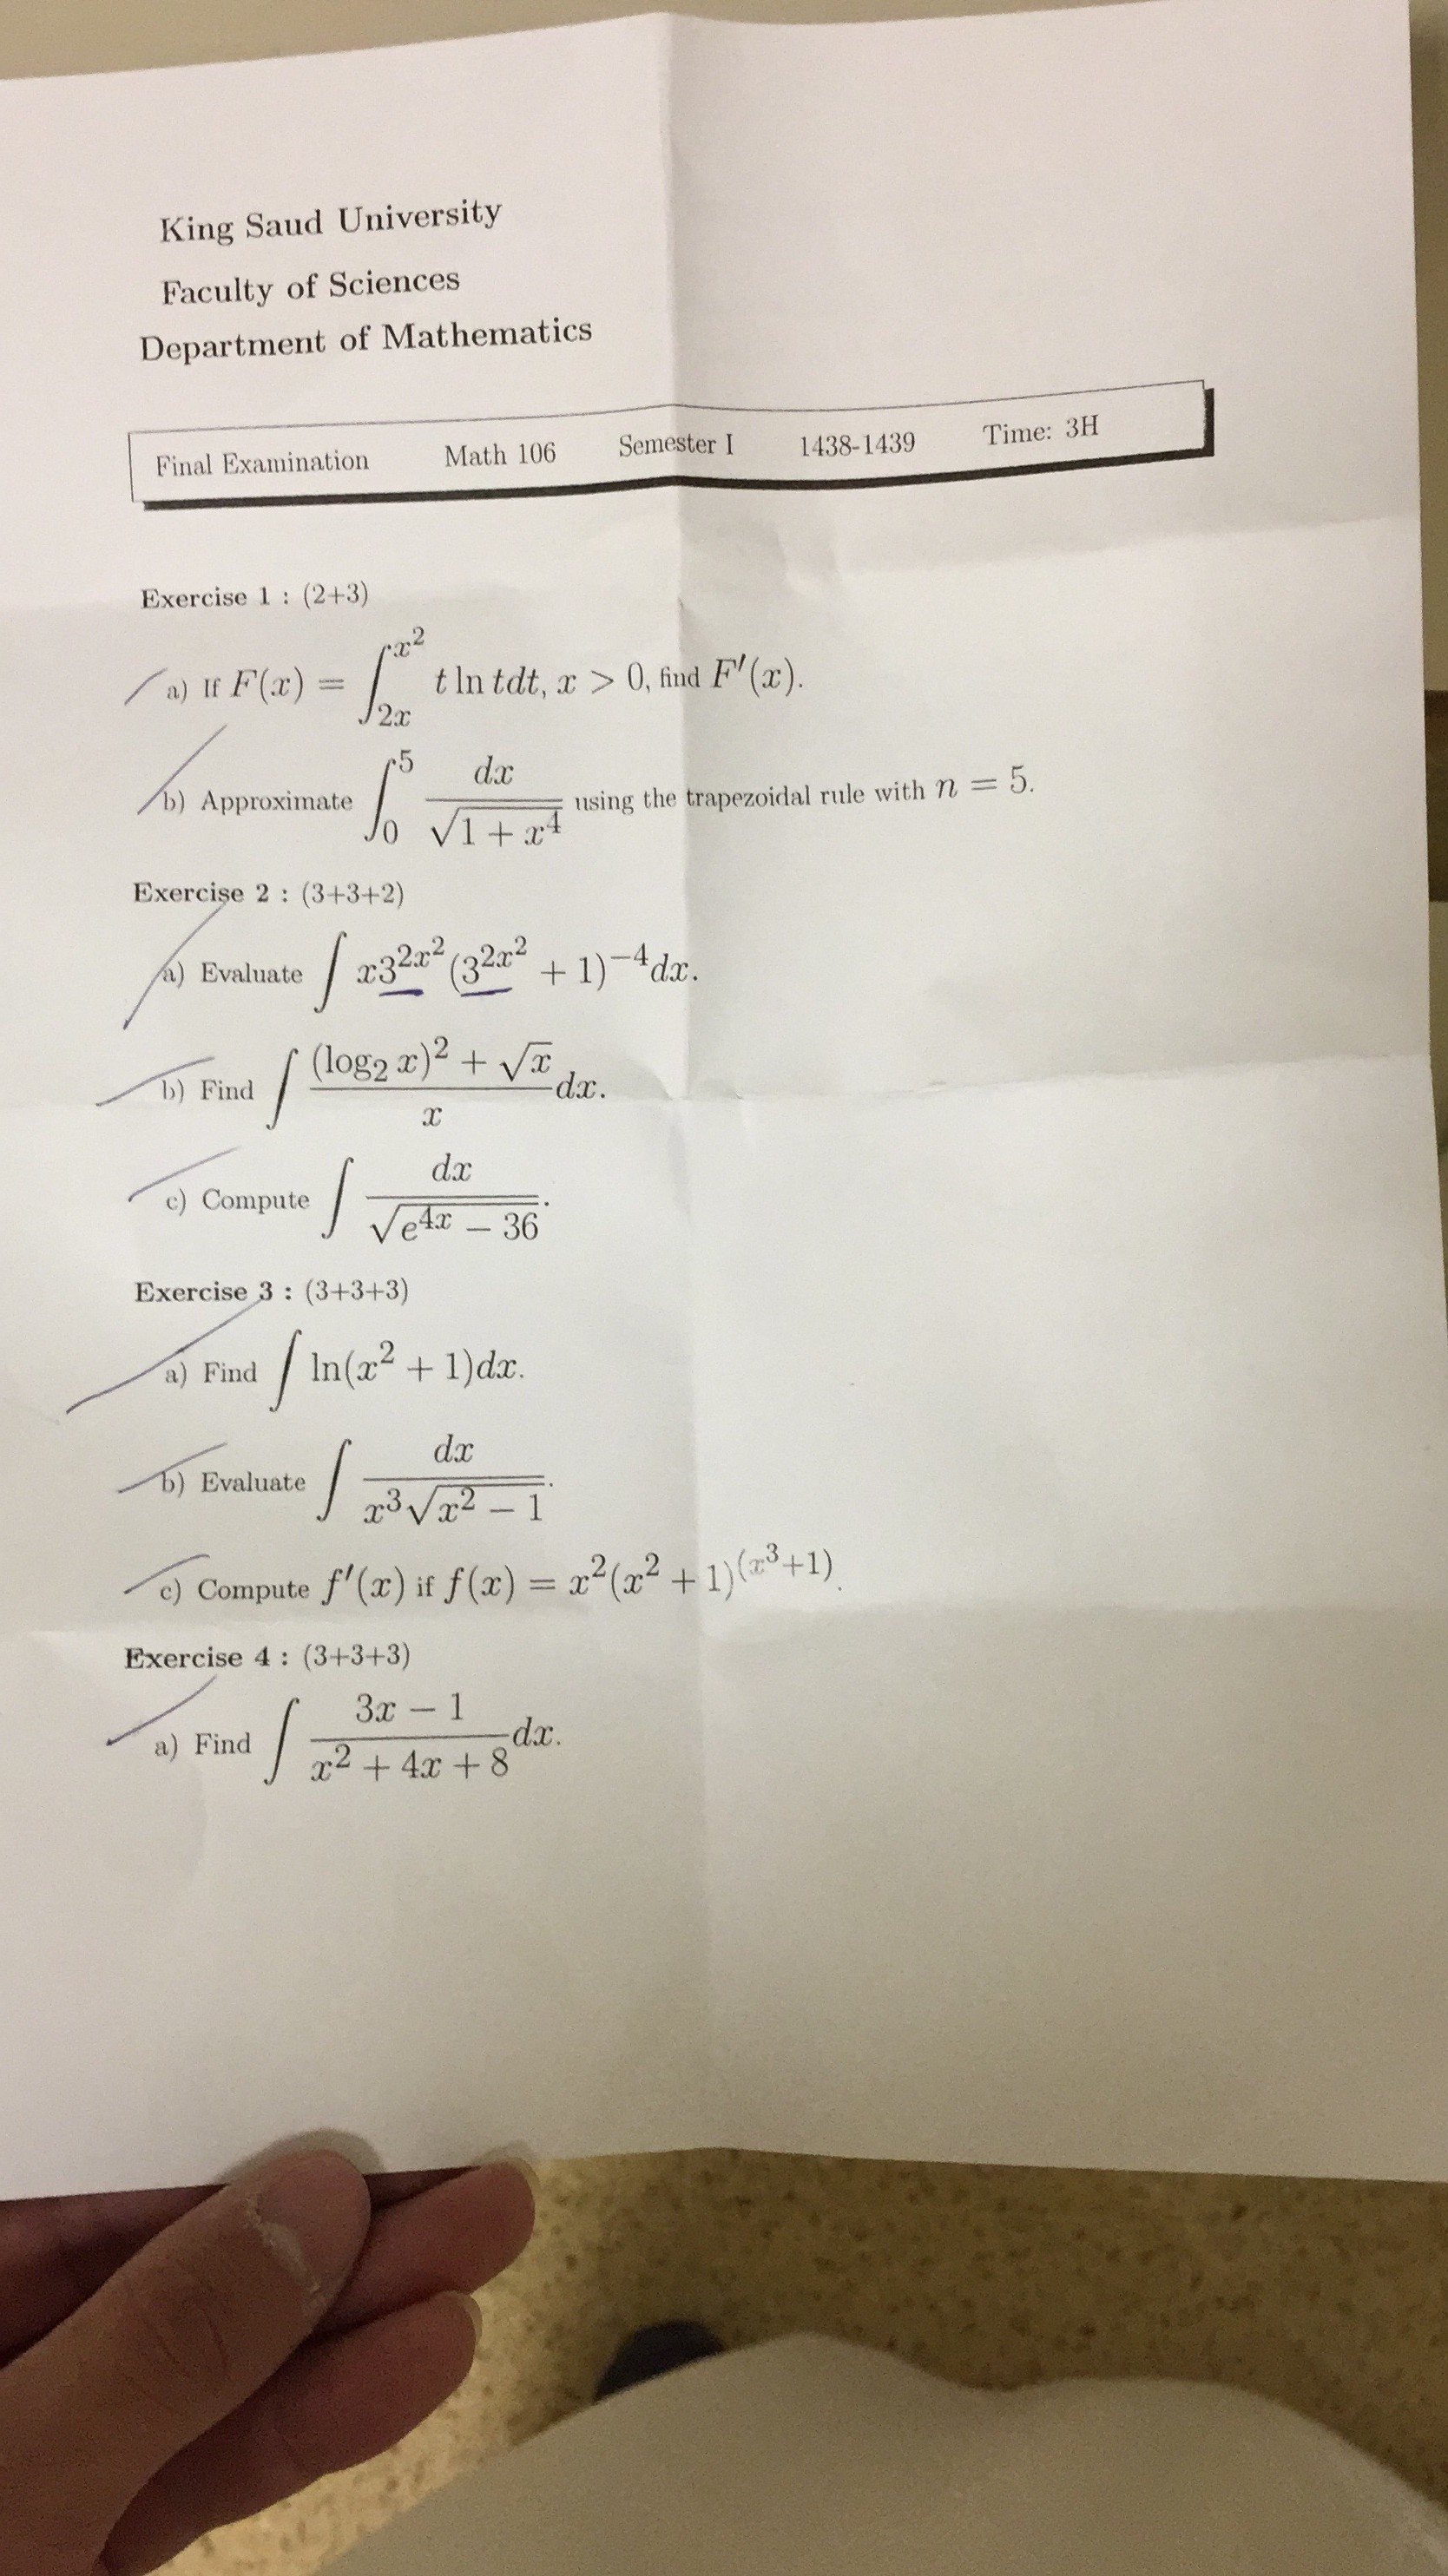 King Saud University
Faculty of Sciences
Department of Mathematics
Final Examination Math 106 Semester I 1438-1439 Time: 3H
Exercise 1 : (2+3)
a) If F(x) = ∫_{2x}^{x^2} t ln tdt, x > 0, find F′(x).
b) Approximate ∫_0^5 dx/√(1 + x^4) using the trapezoidal rule with n = 5.
Exercise 2 : (3+3+2)
a) Evaluate ∫ x3^{2x^2}(3^{2x^2} + 1)^{−4}dx.
b) Find ∫ ((log_2 x)^2 + √x)/x dx.
c) Compute ∫ dx/√(e^{4x} − 36).
Exercise 3 : (3+3+3)
a) Find ∫ ln(x^2 + 1)dx.
b) Evaluate ∫ dx/(x^3√(x^2 − 1)).
c) Compute f′(x) if f(x) = x^2(x^2 + 1)^{(x^3+1)}.
Exercise 4 : (3+3+3)
a) Find ∫ (3x − 1)/(x^2 + 4x + 8) dx.